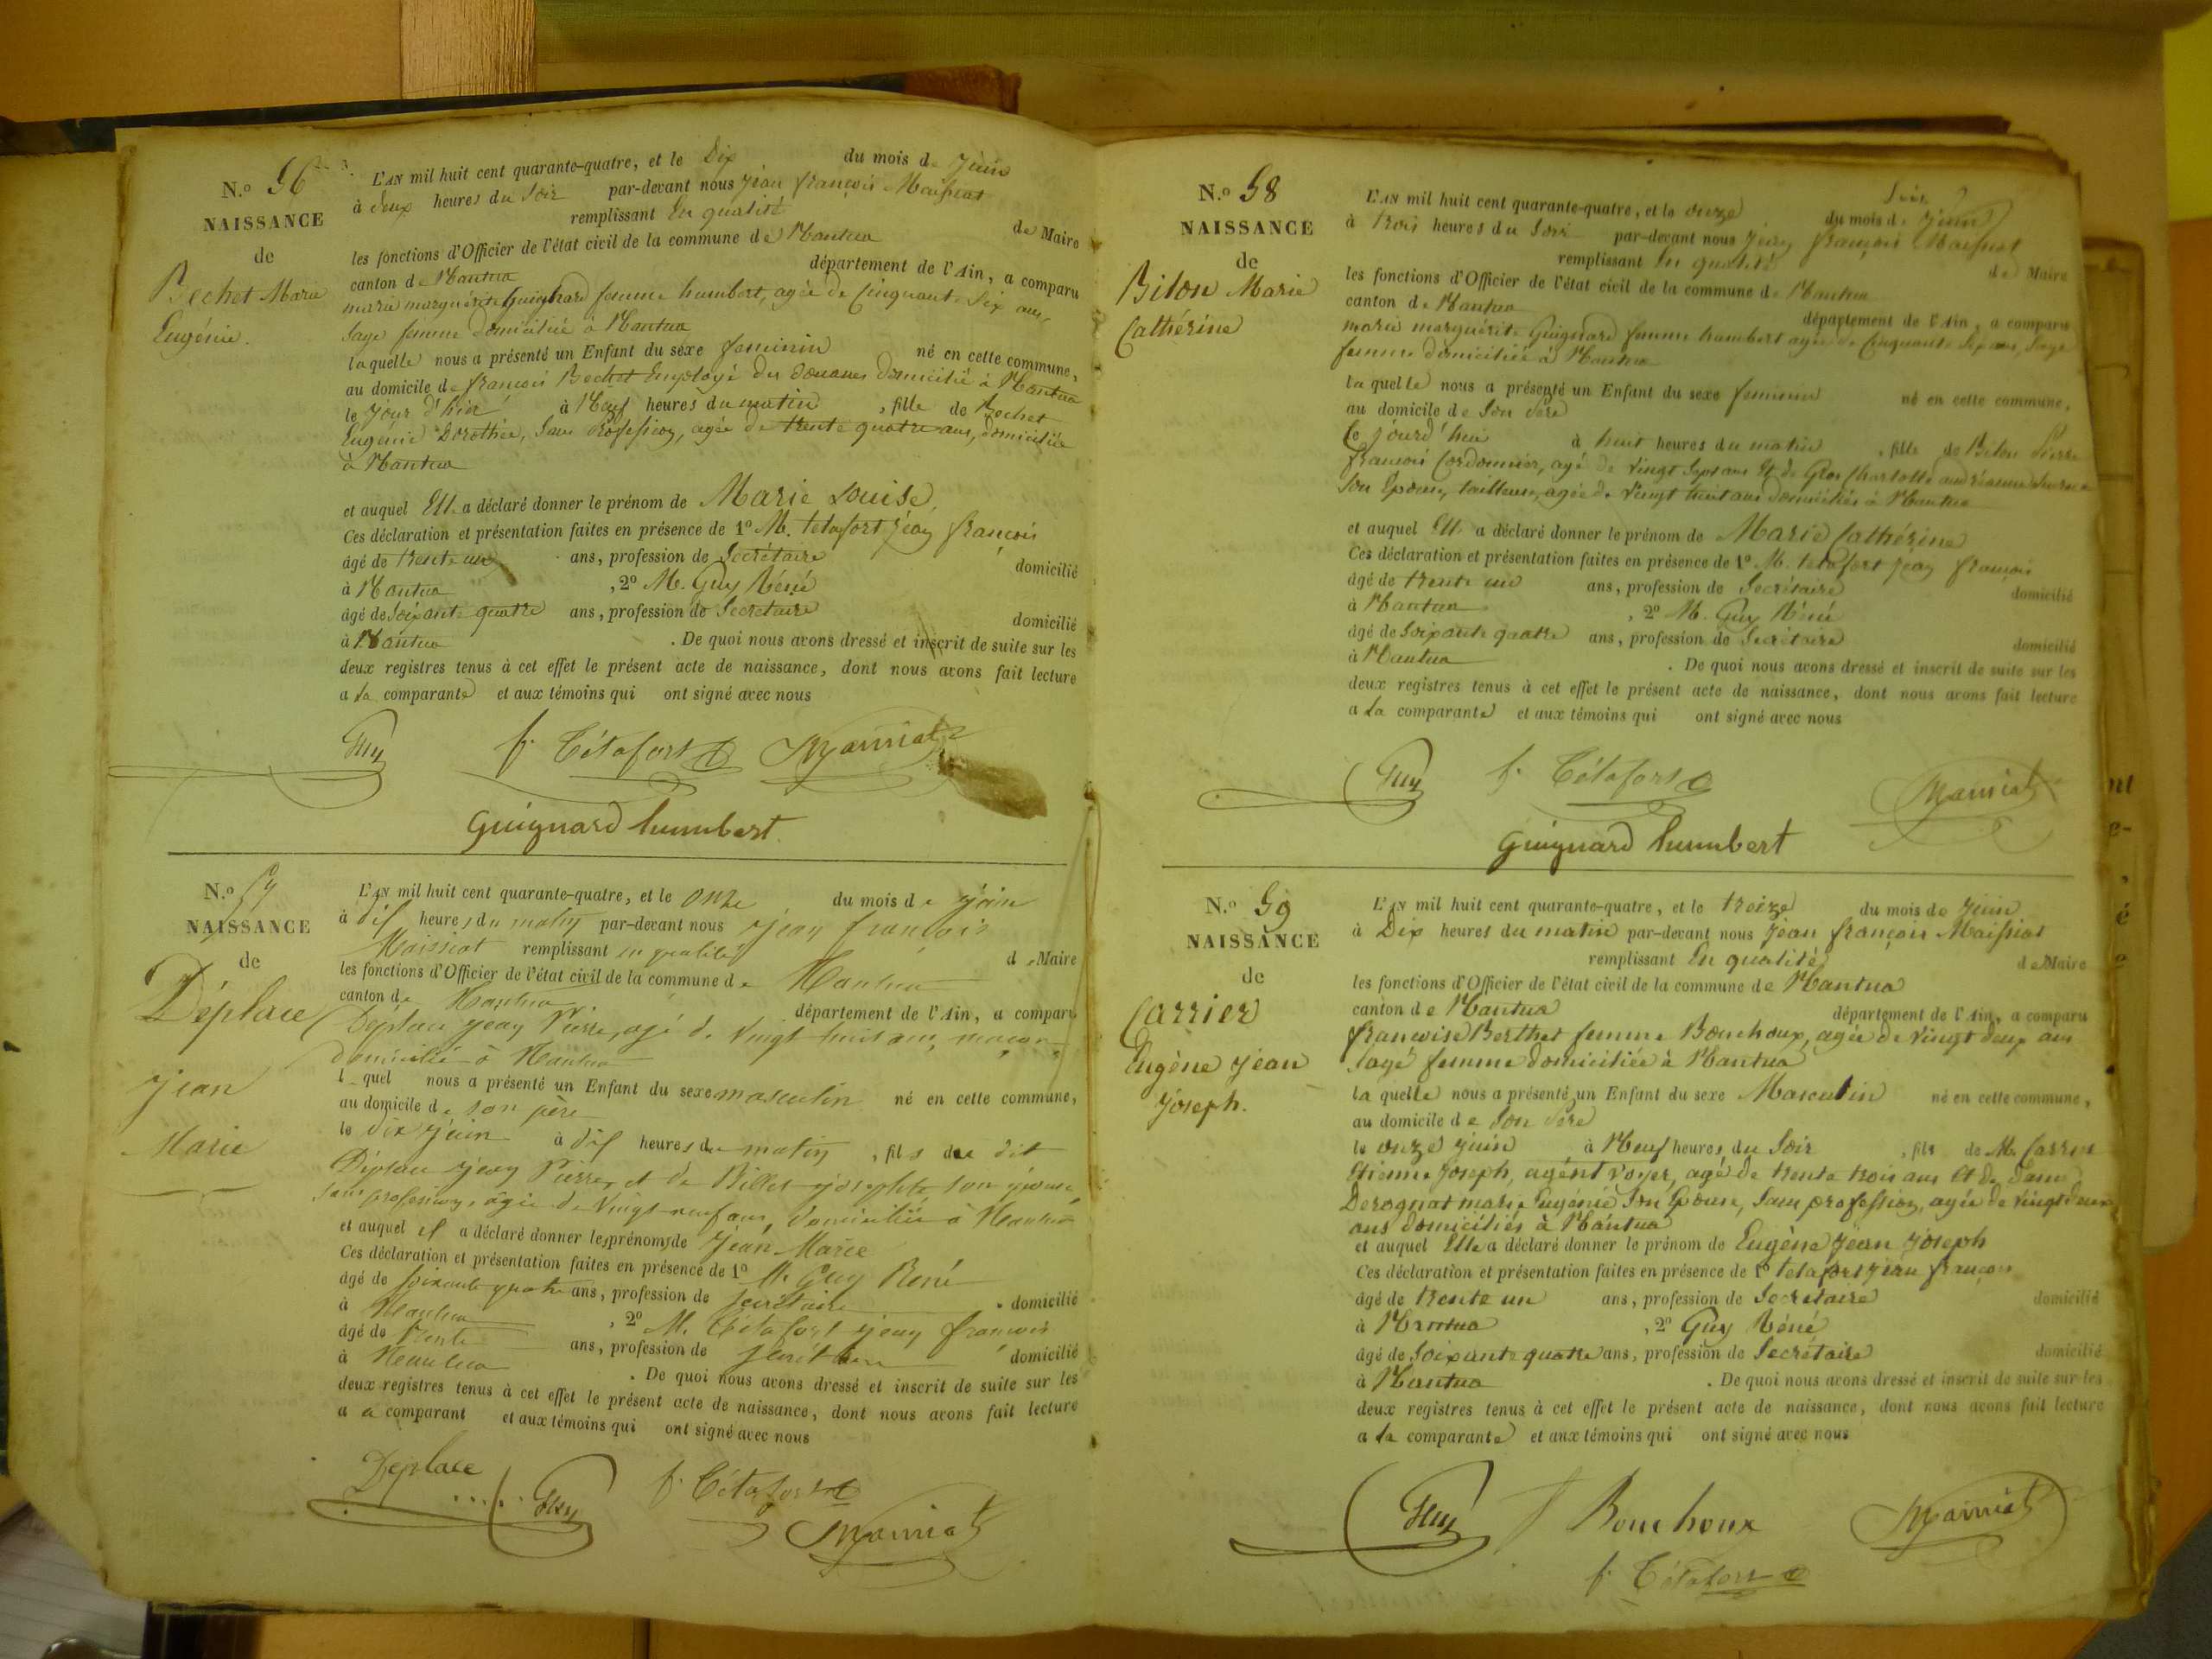 N.o 56
NAISSANCE
de
Bechet Marie
Eugénie.
L'AN mil huit cent quarante-quatre, et le Dix du mois de juin
à deux heures du Soir par-devant nous jean françois Maissiat
remplissant En qualité de Maire
les fonctions d'Officier de l'état civil de la commune de Nantua
canton de Nantua département de l'Ain, a comparu
marie marguerite Guignard femme humbert, agée de Cinquante Six ans,
Sage femme domiciliée à Nantua
laquelle nous a présenté un Enfant du sexe feminin né en cette commune,
au domicile de françois Bechet Employé des douanes domicilié à Nantua
le jour d'hier à Neuf heures du matin , fille de Bechet
Eugénie Dorothée, Sans profession, agée de trente quatre ans, domiciliée
à Nantua
et auquel Elle a déclaré donner le prénom de Marie Louise,
Ces déclaration et présentation faites en présence de 1o M. tetafort jean françois
âgé de trente un ans, profession de Secrétaire domicilié
à Nantua , 2o M. Guy Réné
âgé de Soixante quatre ans, profession de Secretaire domicilié
à Nantua . De quoi nous avons dressé et inscrit de suite sur les
deux registres tenus à cet effet le présent acte de naissance, dont nous avons fait lecture
a la comparante et aux témoins qui ont signé avec nous
Guy f. Tétafort Maissiat
Guignard humbert
N.o 57
NAISSANCE
de
Déplace
Jean
Marie
L'AN mil huit cent quarante-quatre, et le onze du mois de juin
à dix heures du matin par-devant nous jean françois
Maissiat remplissant en qualité d Maire
les fonctions d'Officier de l'état civil de la commune de Nantua
canton de Nantua département de l'Ain, a comparu
Déplace jean Pierre, agé de vingt huit ans, maçon
domicilié à Nantua
l quel nous a présenté un Enfant du sexe masculin né en cette commune,
au domicile de son père
le dix juin à dix heures du matin , fils du dit
Déplace jean Pierre, et de Billet josephte son épouse,
sans profession, agée de vingt neuf ans, domiciliée à Nantua
et auquel il a déclaré donner les prénoms de Jean Marie
Ces déclaration et présentation faites en présence de 1o M. Guy René
âgé de soixante quatre ans, profession de secrétaire domicilié
à Nantua , 2o M. Tétafort jean françois
âgé de trente ans, profession de secrétaire domicilié
à Nantua . De quoi nous avons dressé et inscrit de suite sur les
deux registres tenus à cet effet le présent acte de naissance, dont nous avons fait lecture
a a comparant et aux témoins qui ont signé avec nous
Deplace Guy f. Tétafort
Maissiat
N.o 58
NAISSANCE
de
Bilon Marie
Cathérine
L'AN mil huit cent quarante-quatre, et le onze du mois de juin
à trois heures du Soir par-devant nous jean françois Maissiat
remplissant En qualité de Maire
les fonctions d'Officier de l'état civil de la commune de Nantua
canton de Nantua département de l'Ain, a comparu
marie marguerite Guignard femme humbert agée de Cinquante Six ans, Sage
femme domiciliée à Nantua
laquelle nous a présenté un Enfant du sexe feminin né en cette commune,
au domicile de Son père
le jourd'hui à huit heures du matin , fille de Bilon Pierre
françois Cordonnier, agé de vingt Sept ans Et de Gros Charlotte
Son Epouse, tailleuse, agée de vingt huit ans domiciliés à Nantua
et auquel Elle a déclaré donner le prénom de Marie Cathérine
Ces déclaration et présentation faites en présence de 1o M. tetafort jean françois
âgé de trente un ans, profession de Secrétaire domicilié
à Nantua , 2o M. Guy Réné
âgé de Soixante quatre ans, profession de Secrétaire domicilié
à Nantua . De quoi nous avons dressé et inscrit de suite sur les
deux registres tenus à cet effet le présent acte de naissance, dont nous avons fait lecture
a la comparante et aux témoins qui ont signé avec nous
Guy f. Tétafort Maissiat
Guignard humbert
N.o 59
NAISSANCE
de
Carrier
Eugène Jean
Joseph.
L'AN mil huit cent quarante-quatre, et le treize du mois de juin
à Dix heures du matin par-devant nous jean françois Maissiat
remplissant En qualité de Maire
les fonctions d'Officier de l'état civil de la commune de Nantua
canton de Nantua département de l'Ain, a comparu
françoise Berthet femme Bouchoux, agée de vingt deux ans
Sage femme domiciliée à Nantua
laquelle nous a présenté un Enfant du sexe Masculin né en cette commune,
au domicile de Son père
le onze juin à Neuf heures du Soir , fils de M. Carrier
Etienne Joseph, agent voyer, agé de trente trois ans Et de dame
Derognat marie Eugénie Son Epouse, Sans profession, agée de vingt deux
ans domiciliés à Nantua
et auquel Elle a déclaré donner le prénom de Eugène Jean Joseph
Ces déclaration et présentation faites en présence de 1o tetafort jean françois
âgé de trente un ans, profession de Secrétaire domicilié
à Nantua , 2o Guy Réné
âgé de Soixante quatre ans, profession de Secrétaire domicilié
à Nantua . De quoi nous avons dressé et inscrit de suite sur les
deux registres tenus à cet effet le présent acte de naissance, dont nous avons fait lecture
a la comparante et aux témoins qui ont signé avec nous
Guy f Bouchoux Maissiat
f. Tétafort